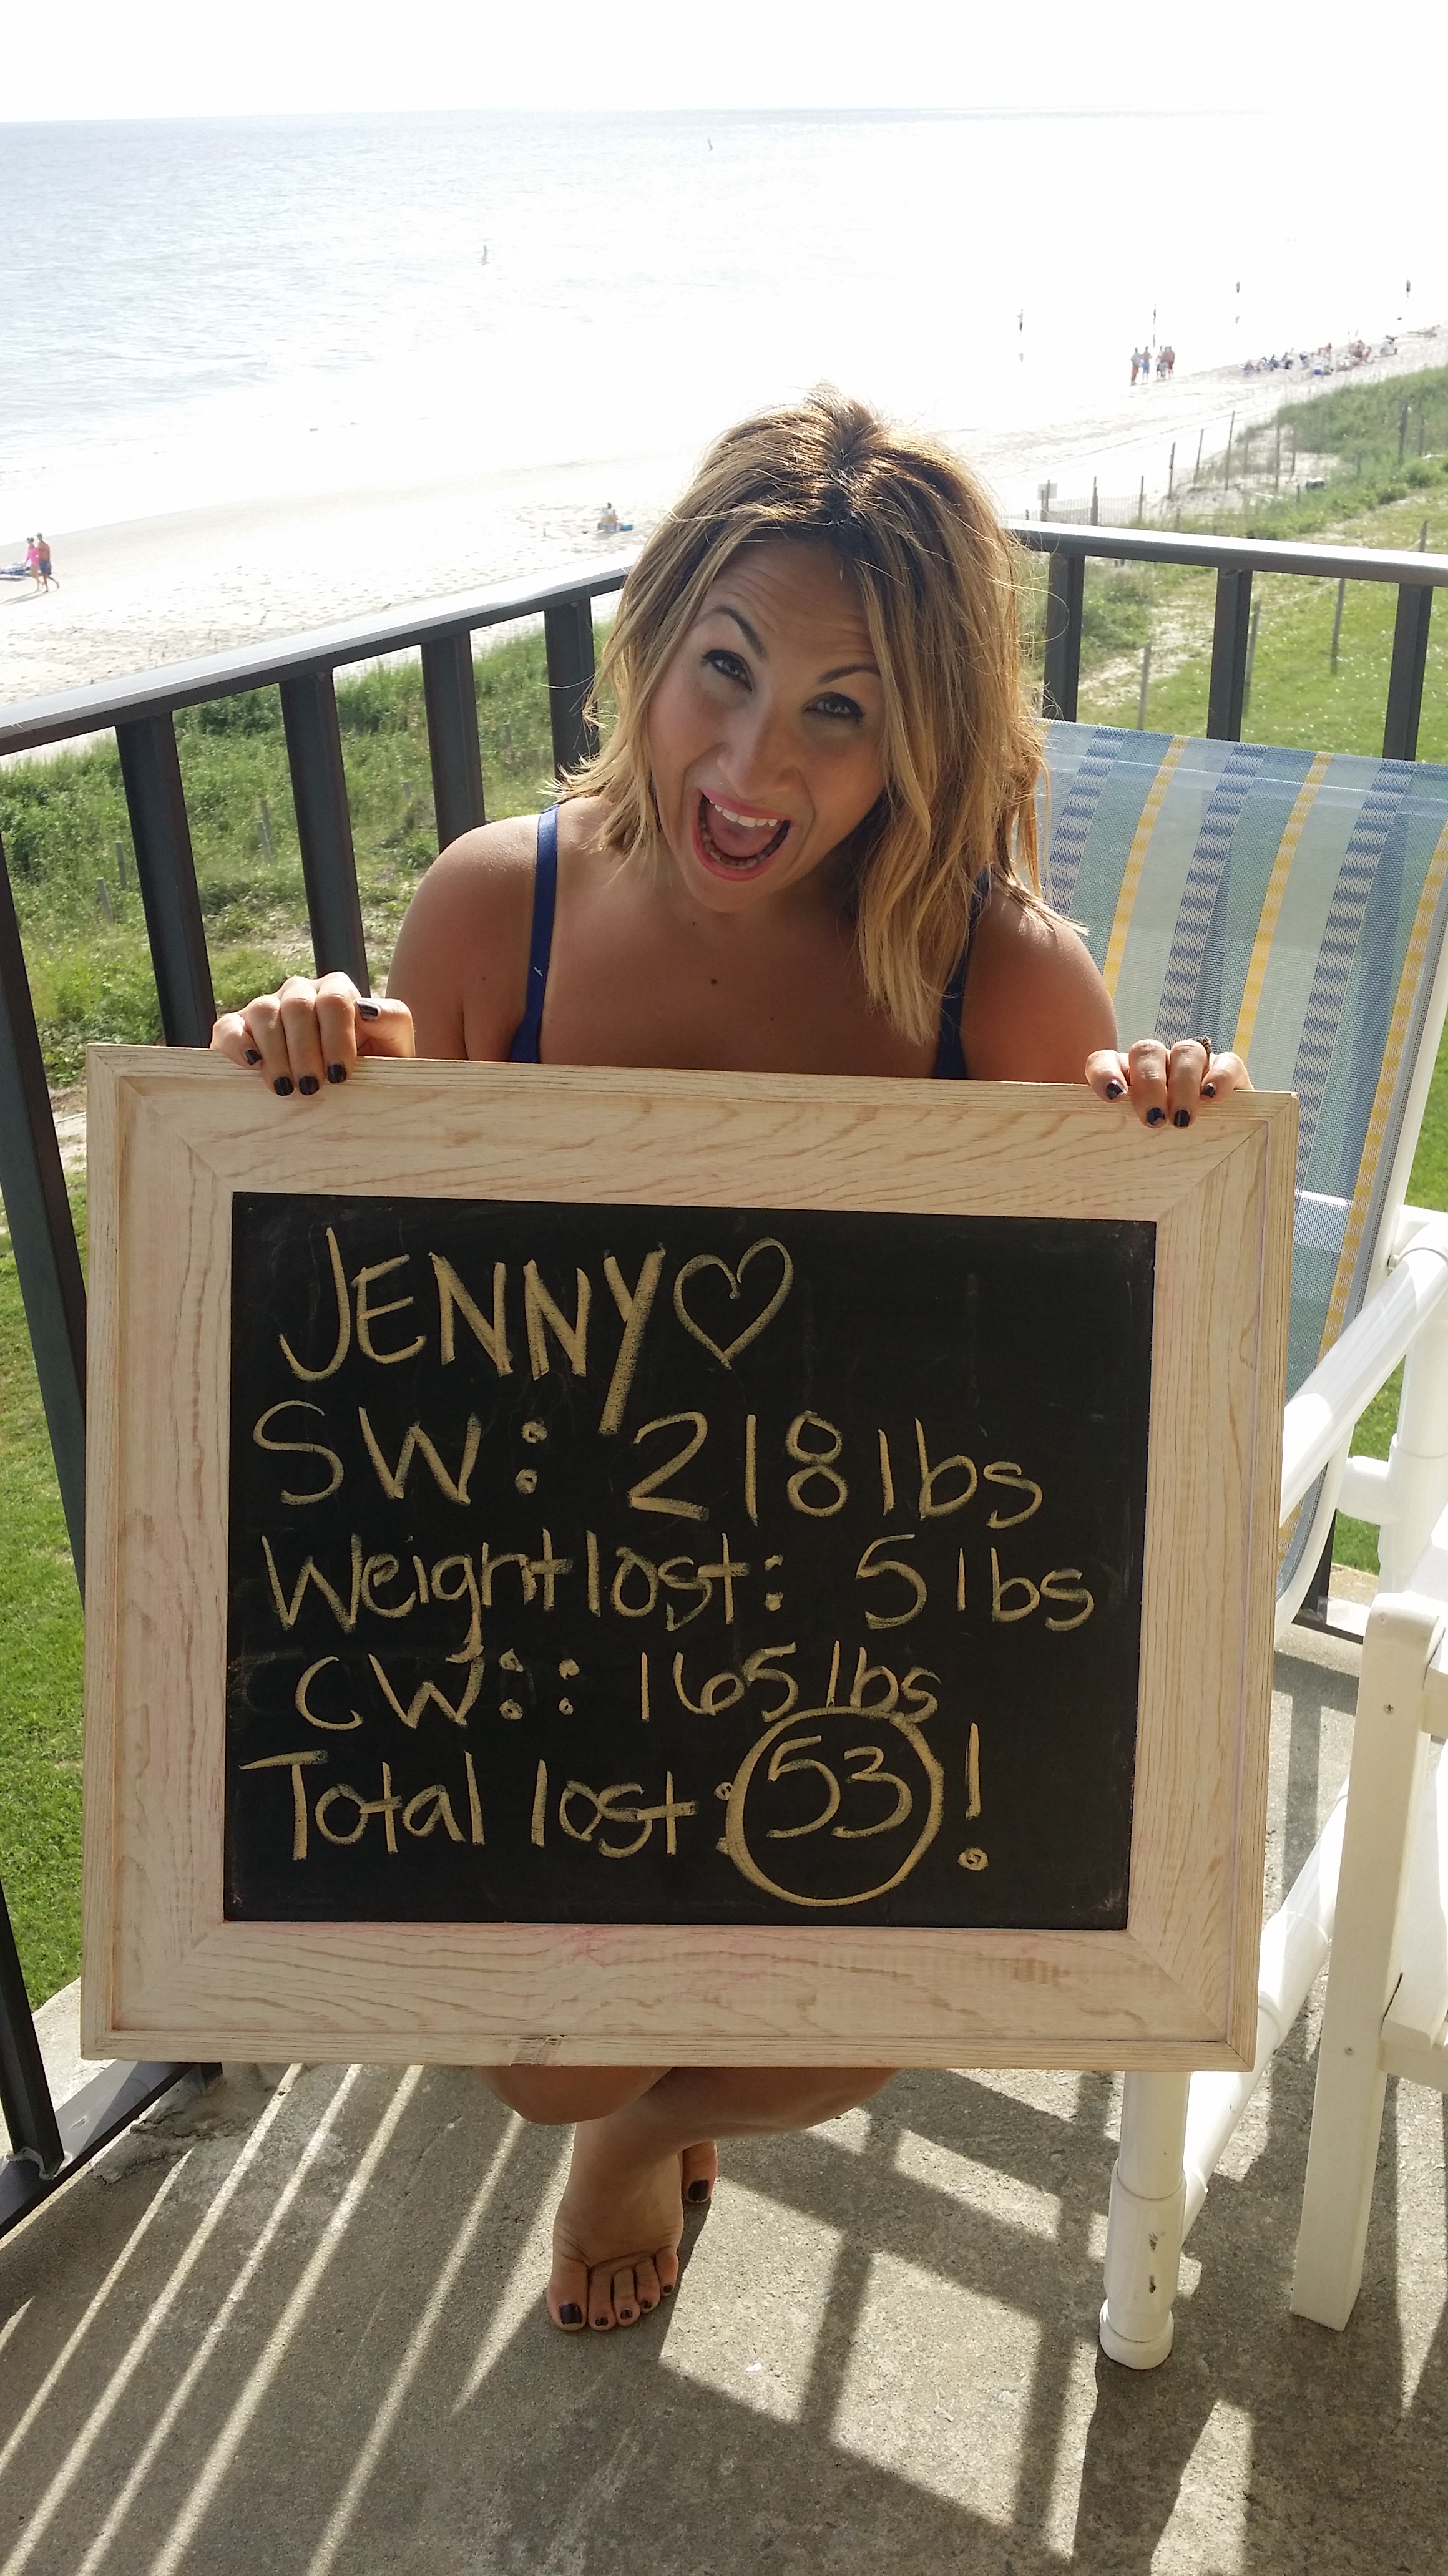 JENNY♡
SW: 218 lbs
Weight lost: 5 lbs
CW:: 165 lbs
Total lost: 53!